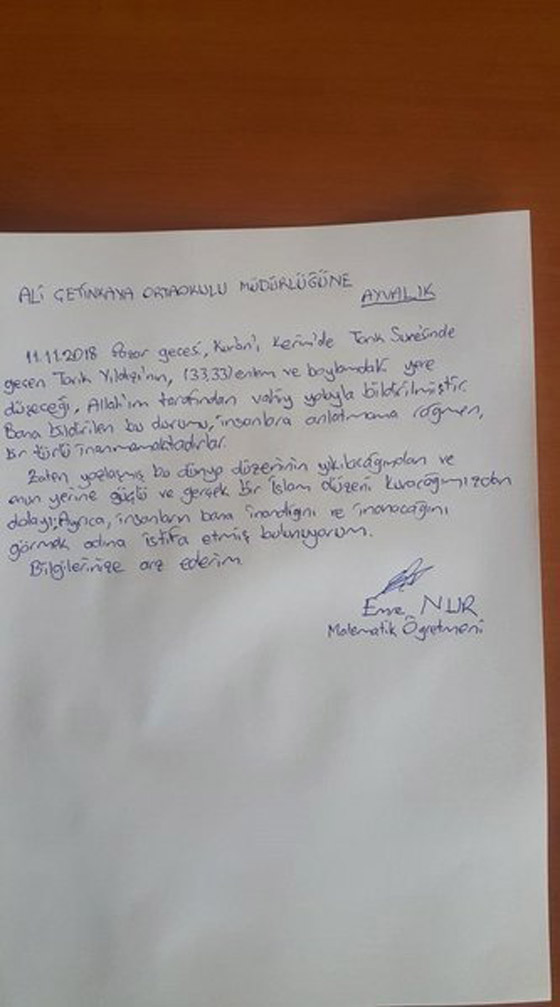 ALİ ÇETİNKAYA ORTAOKULU MÜDÜRLÜĞÜNE
AYVALIK
11.11.2018 Pazar gecesi, Kur'an'ı Kerim'de Tarık Suresinde
geçen Tarık Yıldızı'nın, (33,33) enlem ve boylamdaki yere
düşeceği, Allah'ım tarafından vahiy yoluyla bildirilmiştir.
Bana bildirilen bu durumu, insanlara anlatmama rağmen,
bir türlü inanmamaktadırlar.
Zaten yozlaşmış bu dünya düzeninin yıkılacağından ve
onun yerine güçlü ve gerçek bir İslam düzeni kuracağımızdan
dolayı; Ayrıca, insanların bana inandığını ve inanacağını
görmek adına istifa etmiş bulunuyorum.
Bilgilerinize arz ederim.
Emre NUR
Matematik Öğretmeni